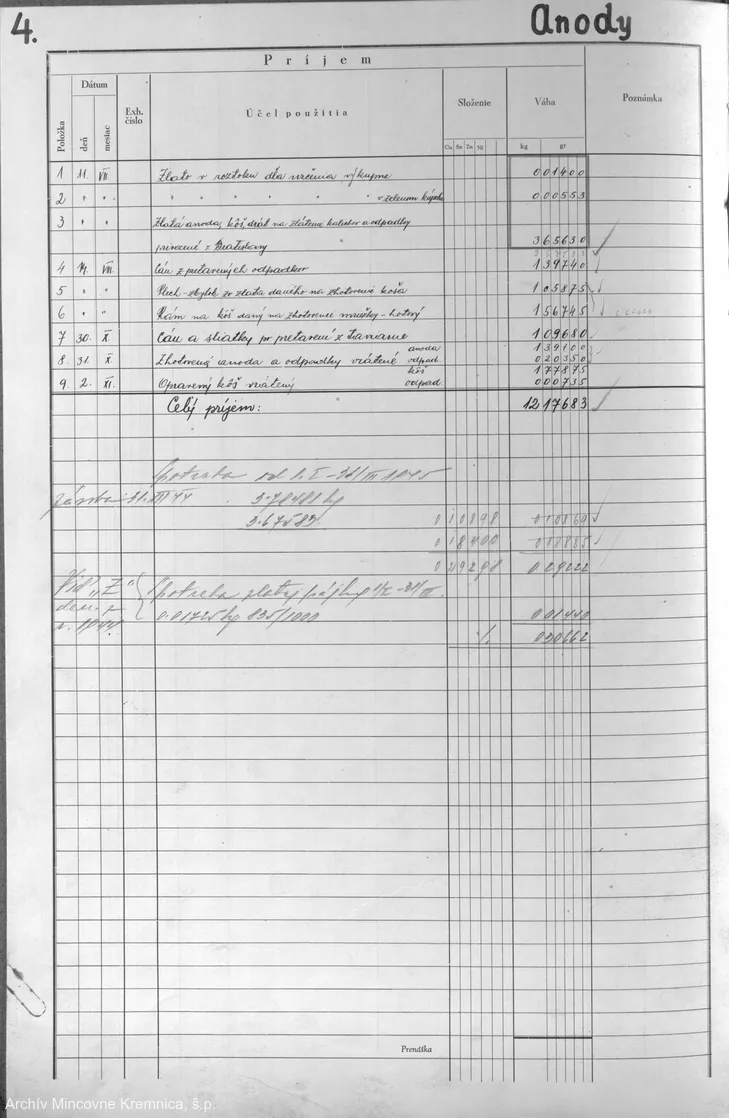 4.
Anody
Príjem
Položka
Dátum
deň
mesiac
Exh. číslo
Účel použitia
Složenie
Cu Sn Zn Ni
Váha
kg gr
Poznámka
1 11. VII. Zlato v roztoku dľa určenia výkupne 001400
2 " " " " " " v zelenom kúpeli 000553
3 " " Zlatá anoda, kôš, drát na zlátenie kalichov a odpadky
privezené z Bratislavy 365630
4 14. VII. Cán z pretavených odpadkov 139740
5 " " Plech-zbytok zo zlata daného na zhotovenie koša 105875
6 " " Rám na kôš daný na zhotovenie mriežky-hotový 156745
7 30. X. Cán a sliatky po pretavení z taviarne 109680
8. 31. X Zhotovená anoda a odpadky vrátené anoda 139100
odpad. 020350
9. 2. XI. Opravený kôš vrátený kôš 177875
odpad 000735
Celý príjem: 1217683
Spotreba od 1. I - 31/III 1945
zásoba 31. XII 44 3.70481 kg
3.67589 010898 010869
018400 018885
029298 029222
Vid „Z"
den. z
r. 1944
Spotreba zlatej pájky 1/I - 31/III.
0.01725 kg 835/1000 001440
% 030662
Prenáška
Archív Mincovne Kremnica, š.p.